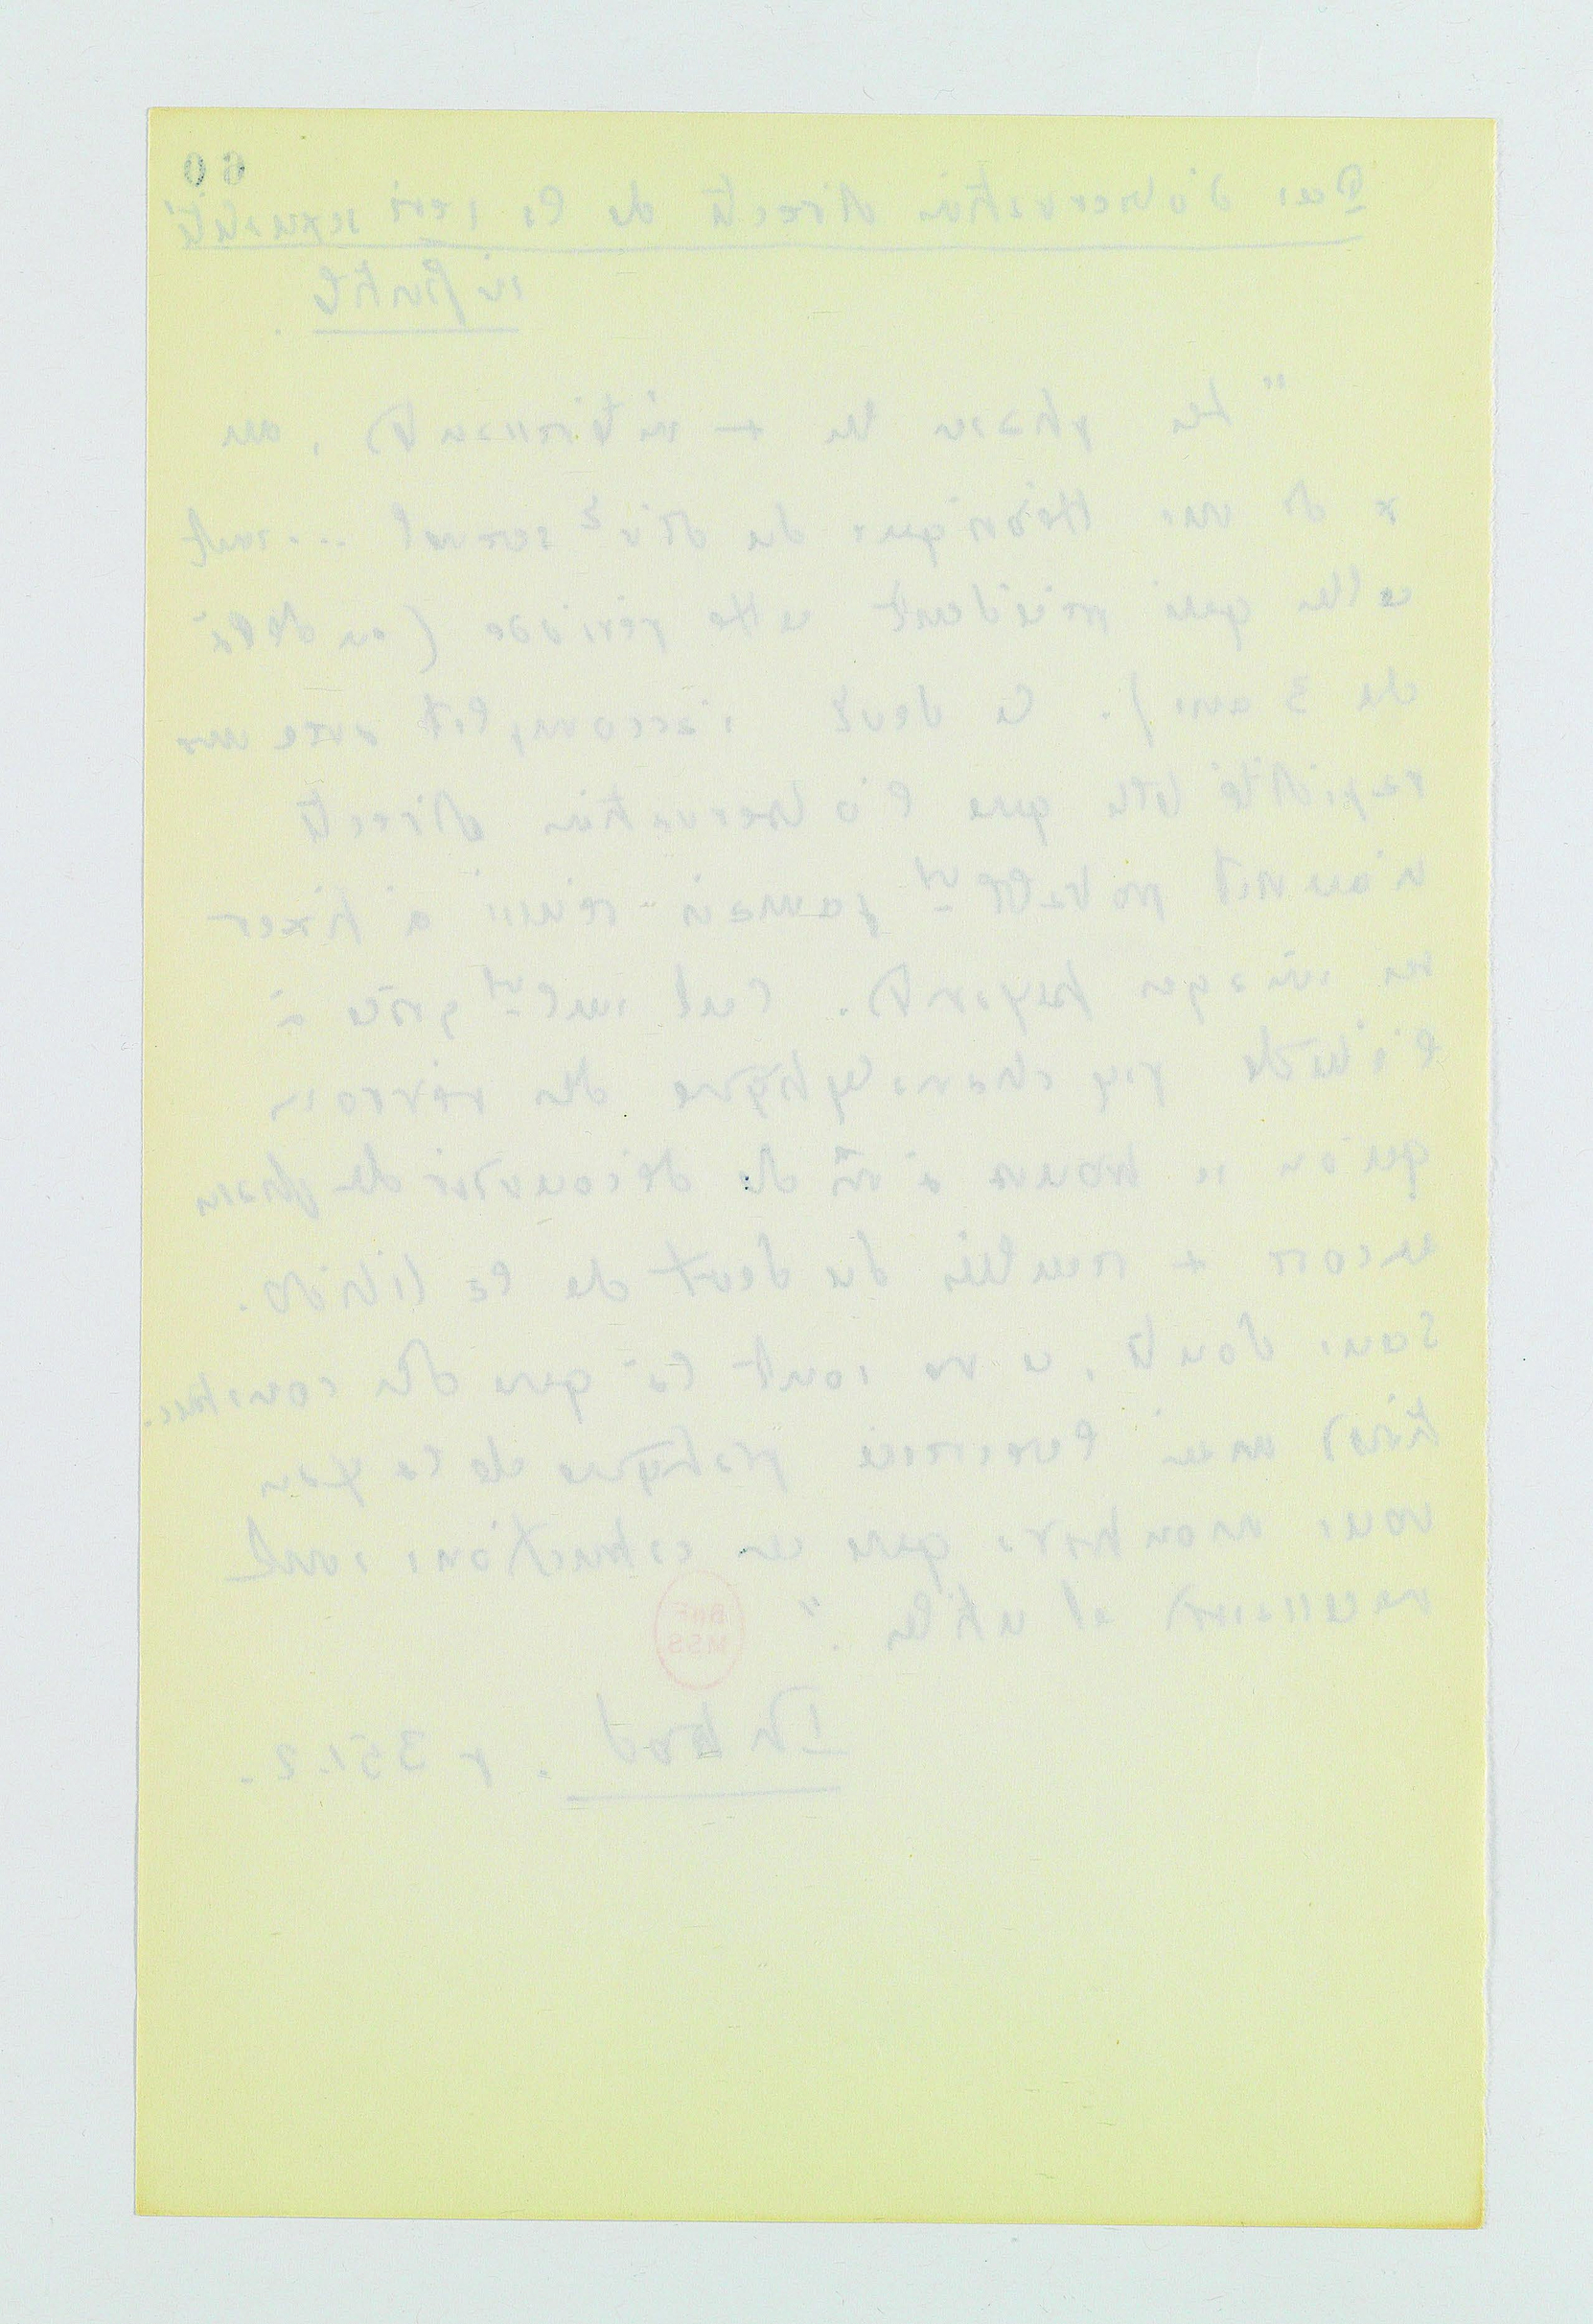 60
Pas d'observation directe de la 1ère sexualité
infantile.
"Les phases les + intéressantes, au
p. de vue théorique, du dév² sexuel ... sont
celles qui précèdent cette période (au delà
de 3 ans). Ce devt s'accomplit avec une
rapidité telle que l'observation directe
n'aurait probablt jamais réussi à fixer
ses images fuyantes. C'est seult grâce à
l'étude psychanalytique des névroses
qu'on se trouve à m de découvrir des phases
encore + reculées du devt de la libido.
Sans doute, ce ne sont là que des construc.
tions mais l'exercice pratique de la psan
vous montrera que ces constructions sont
nécessaires et utiles."
BnF
MSS
Introd. p 351.2.